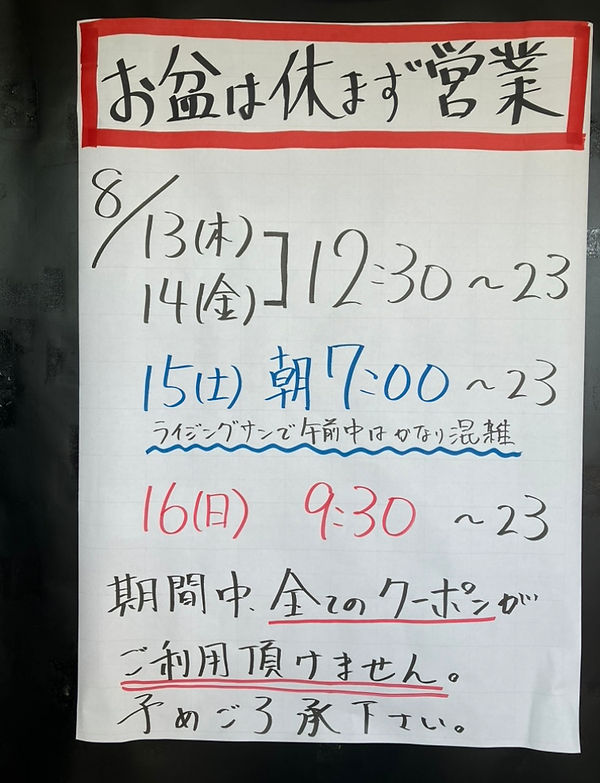 お盆は休まず営業
8/13(木)
14(金)]12:30~23
15(土) 朝7:00~23
ライジングサンで午前中はかなり混雑
16(日) 9:30~23
期間中、全てのクーポンが
ご利用頂けません。
予めご了承下さい。